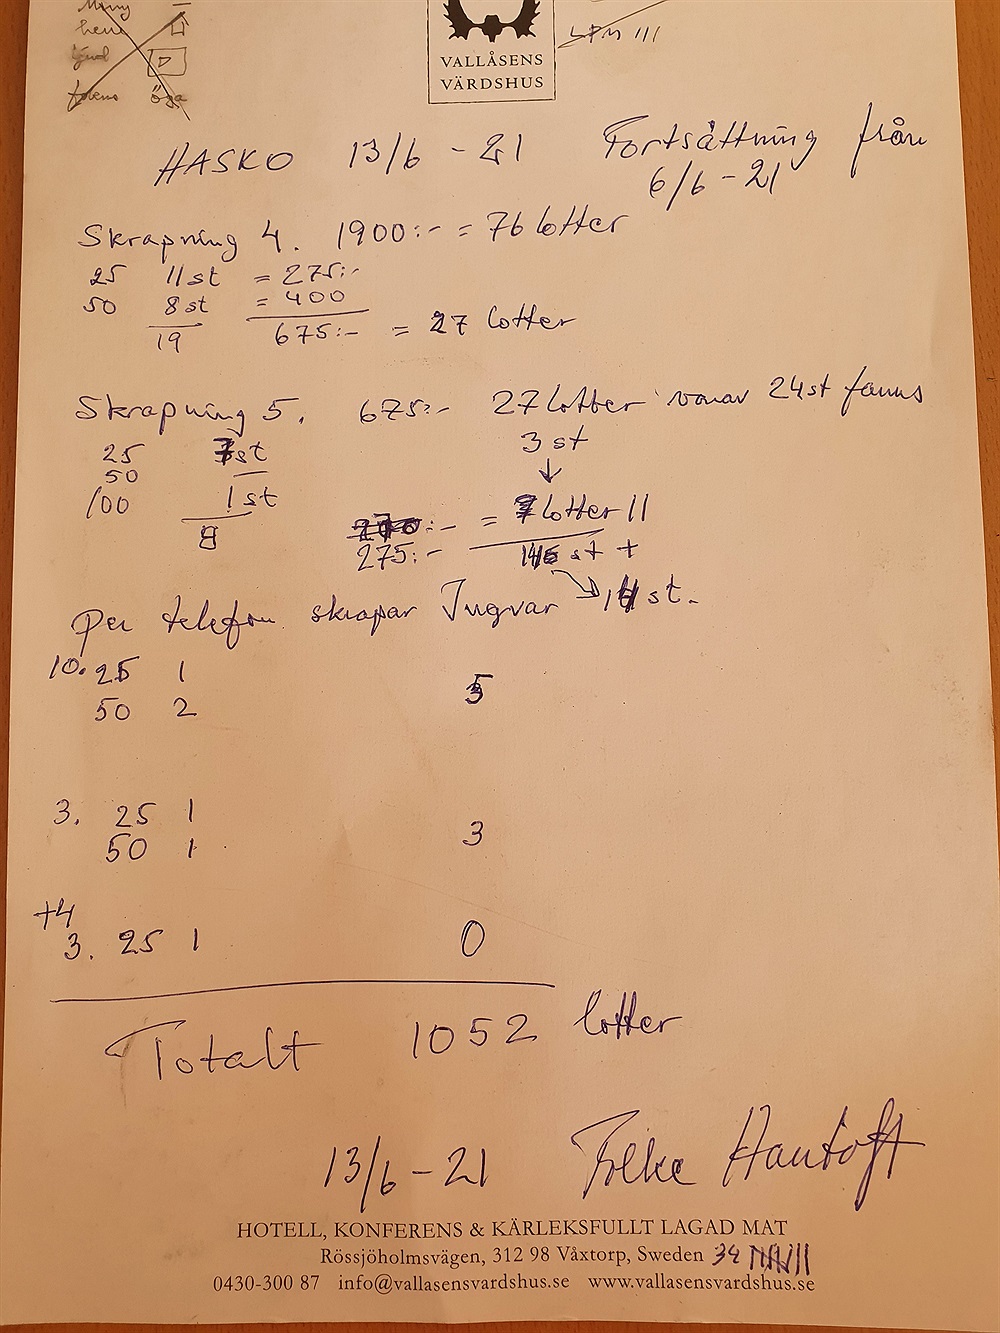 VALLÅSENS
VÄRDSHUS
HASKO 13/6 - 21 Fortsättning från
6/6 - 21
Skrapning 4. 1900:- = 76 lotter
25 11 st = 275:-
50 8 st = 400
19 675:- = 27 lotter
Skrapning 5. 675:- 27 lotter varav 24 st fanns
3 st
25 st
50
100 1 st
8
:- = lotter 11
275:- st +
st.
Per telefon skrapar Ingvar
10. 25 1
50 2
3. 25 1
50 1 3
+4
3. 25 1 0
Totalt 1052 lotter
13/6 - 21 Folke Hantoft
HOTELL, KONFERENS & KÄRLEKSFULLT LAGAD MAT
Rössjöholmsvägen, 312 98 Våxtorp, Sweden 34
0430-300 87 info@vallasensvardshus.se www.vallasensvardshus.se